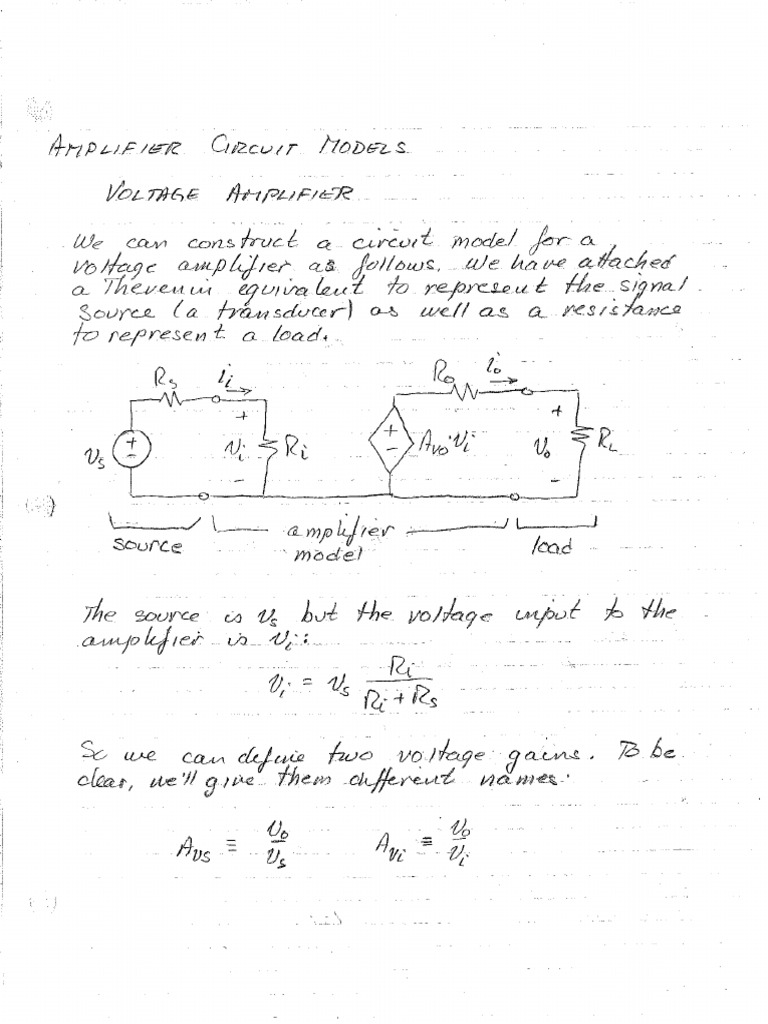 AMPLIFIER CIRCUIT MODELS
VOLTAGE AMPLIFIER
We can construct a circuit model for a
voltage amplifier as follows. We have attached
a Thevenin equivalent to represent the signal
source (a transducer) as well as a resistance
to represent a load.
Rs ii Ro io
+ +
vs + - vi Ri + - Avo·vi vo RL
- -
source amplifier model load
The source is vs but the voltage input to the
amplifier is vi:
vi = vs Ri / (Ri + Rs)
So we can define two voltage gains. To be
clear, we'll give them different names:
Avs ≡ vo/vs Avi ≡ vo/vi